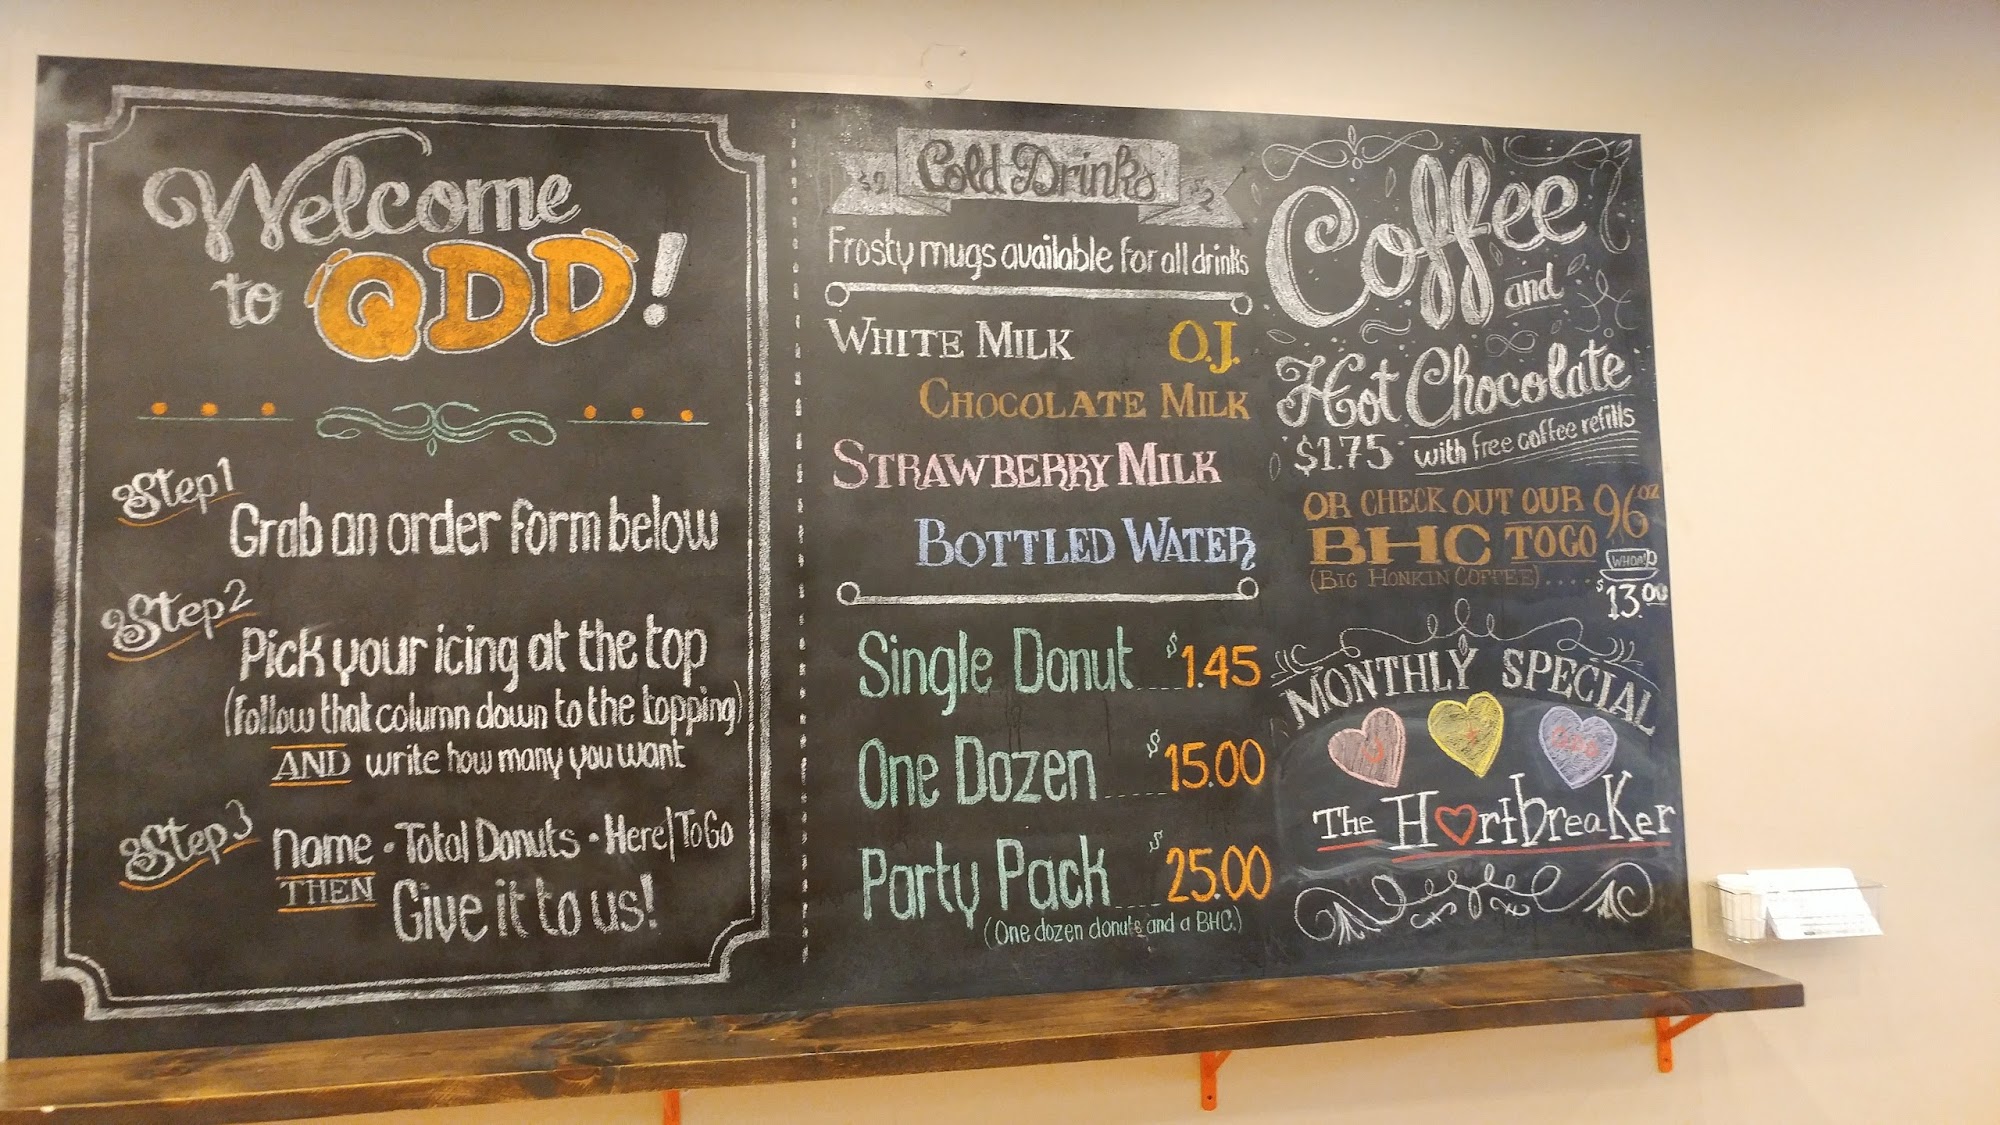 Welcome
to QDD!
Step 1
Grab an order form below
Step 2
Pick your icing at the top
(follow that column down to the topping)
AND write how many you want
Step 3
Name • Total Donuts • Here|To Go
THEN Give it to us!
$2 Cold Drinks $2
Frosty mugs available for all drinks
WHITE MILK O.J.
CHOCOLATE MILK
STRAWBERRY MILK
BOTTLED WATER
Single Donut $1.45
One Dozen $15.00
Party Pack $25.00
(One dozen donuts and a BHC.)
Coffee
and
Hot Chocolate
$1.75 with free coffee refills
OR CHECK OUT OUR 96oz
BHC TO GO
WHOA!
(BIG HONKIN COFFEE).... $13.00
MONTHLY SPECIAL
THE H♡rtbreaKer